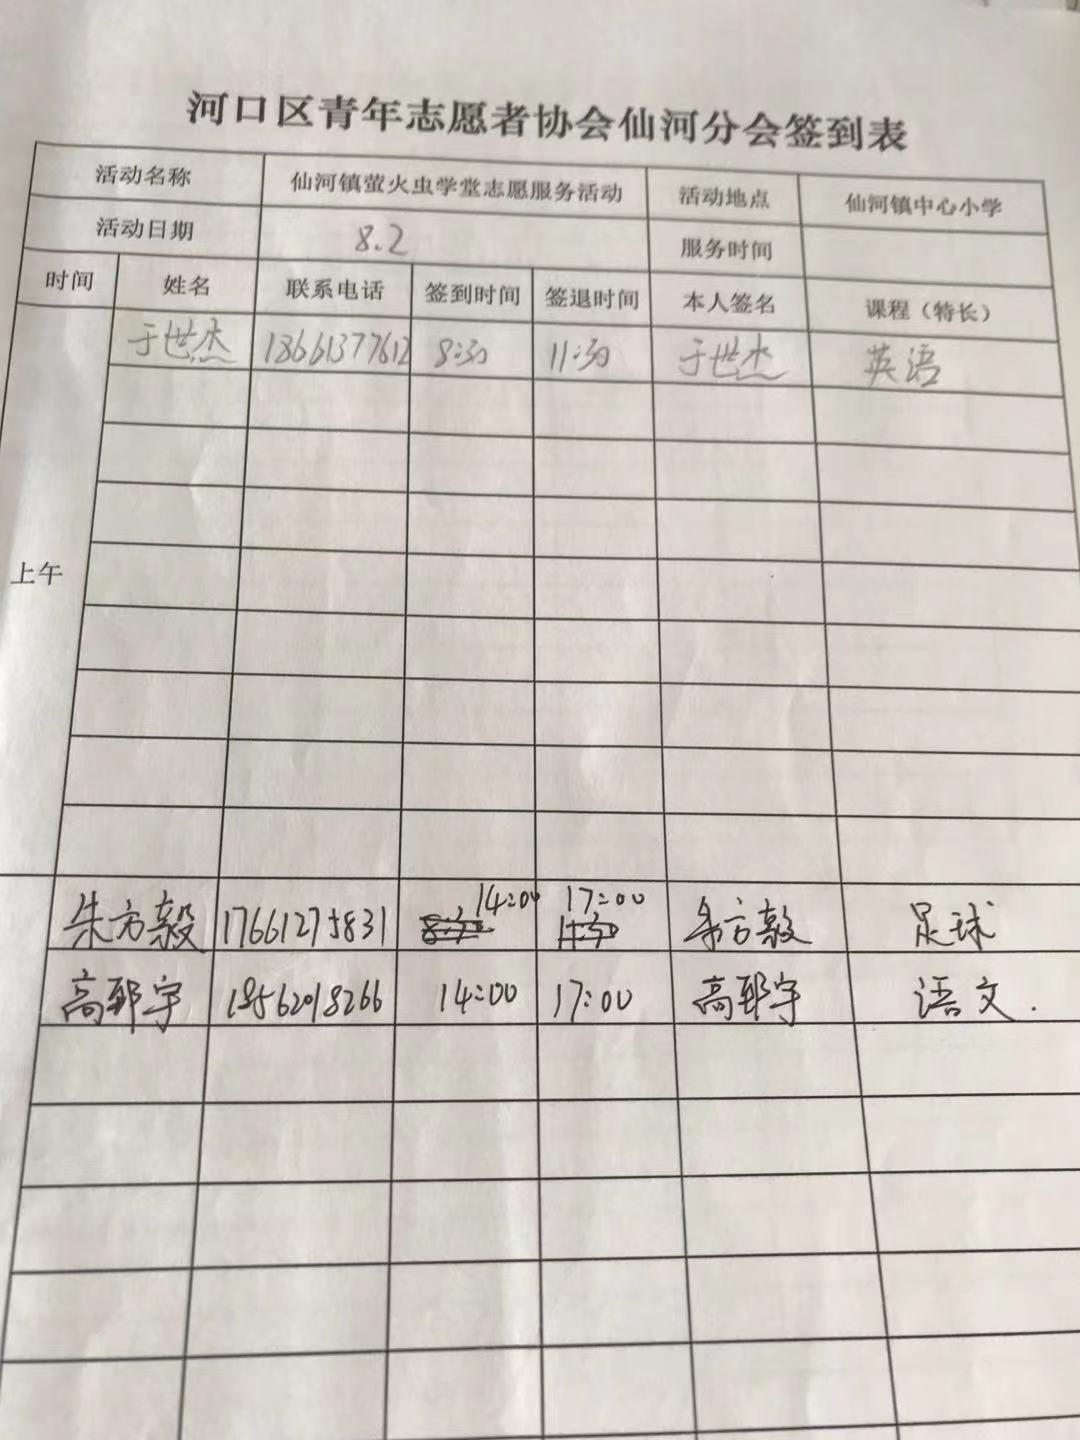 河口区青年志愿者协会仙河分会签到表
活动名称 仙河镇萤火虫学堂志愿服务活动 活动地点 仙河镇中心小学
活动日期 8.2 服务时间
时间 姓名 联系电话 签到时间 签退时间 本人签名 课程（特长）
于世杰 18661377612 8:30 11:30 于世杰 英语
上午
朱方毅 17661275831 14:00 17:00 朱方毅 足球
高郓宇 18562018266 14:00 17:00 高郓宇 语文.